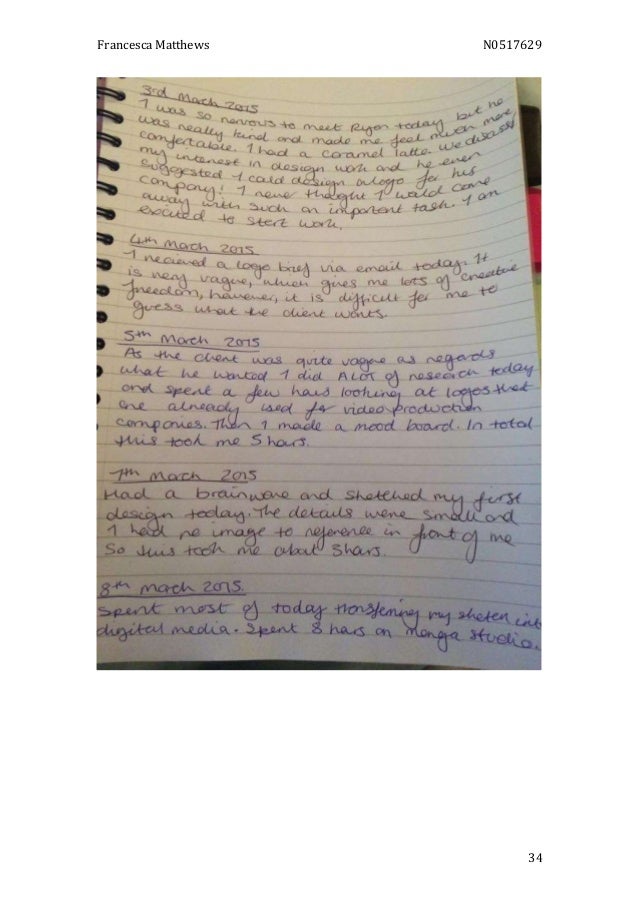 Francesca Matthews N0517629
3rd March 2015
I was so nervous to meet Ryan today but he
was really kind and made me feel much more
comfortable. I had a caramel latte. We discussed
my interest in design work and he even
suggested I could design a logo for his
company! I never thought I would come
away with such an important task. I am
excited to start work.
4th March 2015
I recieved a logo brief via email today. It
is very vague, which gives me lots of creative
freedom, however, it is difficult for me to
guess what the client wants.
5th March 2015
As the client was quite vague as regards
what he wanted I did A LOT of research today
and spent a few hours looking at logos that
are already used for video production
companies. Then I made a mood board. In total
this took me 5 hours.
7th March 2015
Had a brainwave and sketched my first
design today. The details were small and
I had no image to reference in front of me
so this took me about 3 hours.
8th March 2015.
Spent most of today transferring my sketch into
digital media. Spent 8 hours on Manga Studio.
34